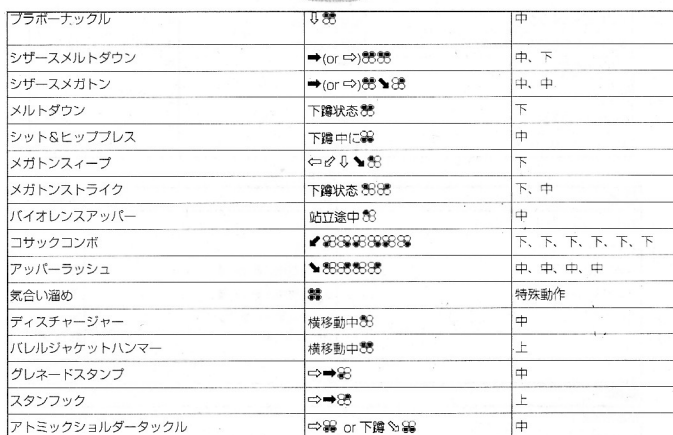 ブラボーナックル ⇩ 中
シザースメルトダウン ➡(or ⇨) 中、下
シザースメガトン ➡(or ⇨) ⬊ 中、中
メルトダウン 下蹲状态 下
シット&ヒッププレス 下蹲中に 中
メガトンスィープ ⇦⬃⇩⬊ 下
メガトンストライク 下蹲状态 下、中
バイオレンスアッパー 站立途中 中
コサックコンボ ⬋ 下、下、下、下、下、下
アッパーラッシュ ⬊ 中、中、中、中
気合い溜め 特殊動作
ディスチャージャー 横移動中 中
バレルジャケットハンマー 横移動中 上
グレネードスタンプ ⇨➡ 中
スタンフック ⇨➡ 上
アトミックショルダータックル ⇨ or 下蹲⬂ 中